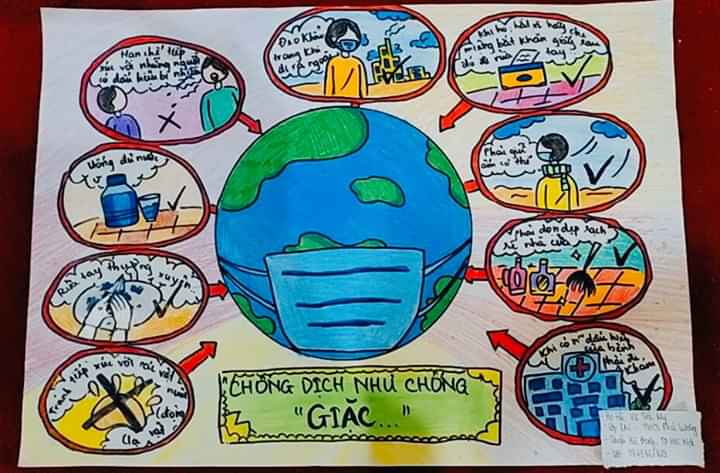 Hạn chế tiếp
xúc với những người
có dấu hiệu bị nhiễm
Đeo khẩu
trang khi
đi ra ngoài
Khi ho, hắt xì hãy che
miệng bằng khăn giấy sau
đó đi rửa tay
Uống đủ nước
Phải giữ
ấm cơ thể
Rửa tay thường xuyên
Phải dọn dẹp sạch
sẽ nhà cửa
Tránh tiếp xúc với các vật
nuôi
(động
vật)
Khi có
dấu hiệu
của bệnh
phải đi
khám
CHỐNG DỊCH NHƯ CHỐNG
"GIẶC..."